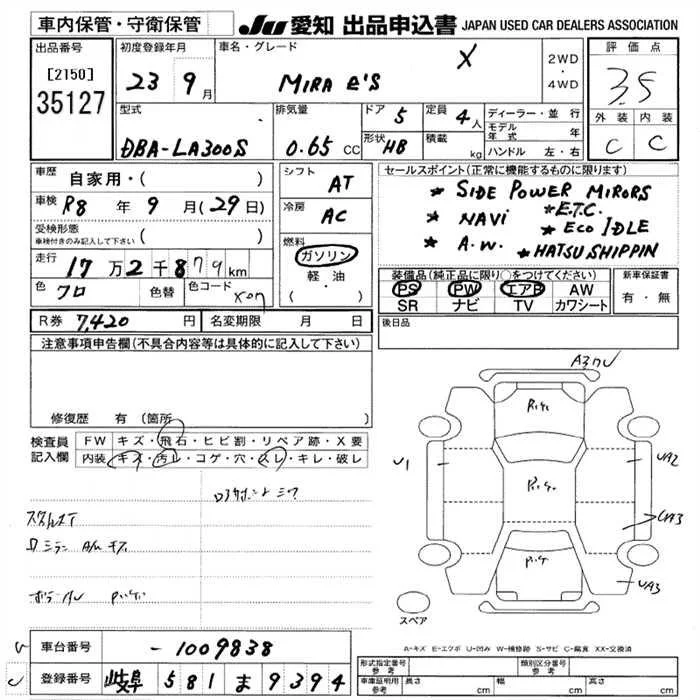 車内保管・守衛保管
JU 愛知 出品申込書 JAPAN USED CAR DEALERS ASSOCIATION
出品番号
[2150]
35127
初度登録年月
23 9月
車名・グレード
MIRA e'S X
2WD
・
4WD
評価点
3.5
外装 内装
C C
型式
DBA-LA300S
排気量
0.65 CC
ドア 5
定員 4人
形状 HB
積載 kg
ディーラー・並行
モデル年式 年
ハンドル 左・右
車歴
自家用・( )
車検 R8年 9月(29日)
受検形態
車検付きのみ記入して下さい ( )
走行 17万2千879km
色 クロ 色替 色コード X07
シフト AT
冷房 AC
燃料
ガソリン
軽・油
( ・ )
セールスポイント(正常に機能するものに限ります)
* SIDE POWER MIRORS
* NAVI * E.T.C.
* A.W. * ECO IDLE
* HATSU SHIPPIN
装備品(純正品に限り○をつけてください)
PS PW エアB AW
SR ナビ TV カワシート
新車保証書
有・無
R券 7,420円 名変期限 月 日
後日品
注意事項申告欄(不具合内容等は具体的に記入して下さい)
修復歴 有 (箇所 )
検査員記入欄
FW キズ・飛石・ヒビ割・リペア跡・X要
内装 キズ・汚レ・コゲ・穴・スレ・キレ・破レ
U1
UA2
UA3
UA3
スペア
A-キズ E-エクボ U-凹み W-補修跡 S-サビ C-腐食 XX-交換済
車台番号 -1009838
登録番号 岐阜 581 ま 9394
形式指定番号 参考
類別区分番号 参考
車庫証明用 参考 長さ cm 幅 cm 高さ cm